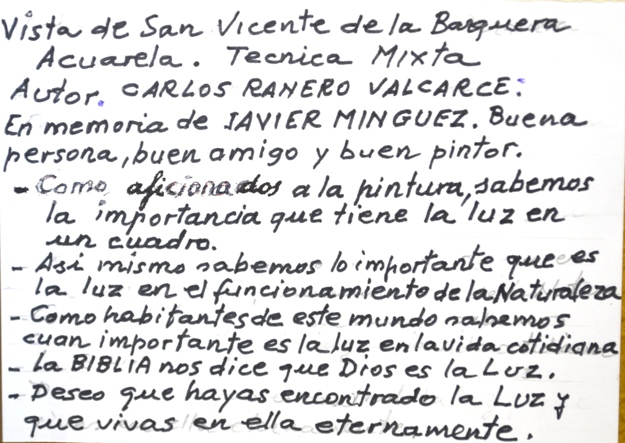 Vista de San Vicente de la Barquera
Acuarela. Tecnica Mixta
Autor. CARLOS RANERO VALCARCE:
En memoria de JAVIER MINGUEZ. Buena
persona, buen amigo y buen pintor.
- Como aficionados a la pintura, sabemos
la importancia que tiene la luz en
un cuadro.
- Asi mismo sabemos lo importante que es
la luz en el funcionamiento de la Naturaleza
- Como habitantes de este mundo sabemos
cuan importante es la luz en la vida cotidiana
- La BIBLIA nos dice que Dios es la Luz.
- Deseo que hayas encontrado la Luz y
que vivas en ella eternamente.